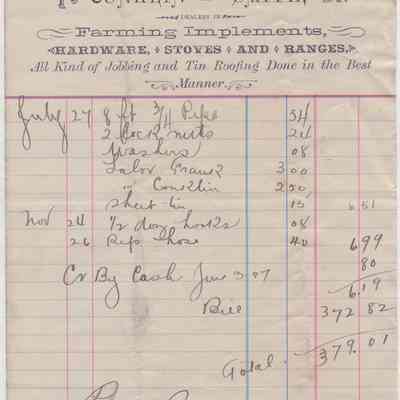 DEALERS IN
Farming Implements,
HARDWARE, STOVES AND RANGES,
All Kind of Jobbing and Tin Roofing Done in the Best
Manner.
July 27 8 ft 3/4 Pipe 54
2 Lock nuts 24
Washers 08
Labor Frank 3 00
" Conklin 2 50
Sheet tin 15 6 51
Nov 24 1/2 doz hooks 08
26 Rep hose 40 6 99
80
Cr By Cash 07 6.19
Bill 372 82
Total 379.01